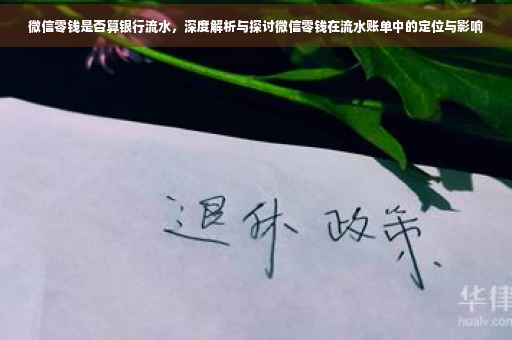 微信零钱是否算银行流水，深度解析与探讨微信零钱在流水账单中的定位与影响
退休 政策
华律
hualv.com